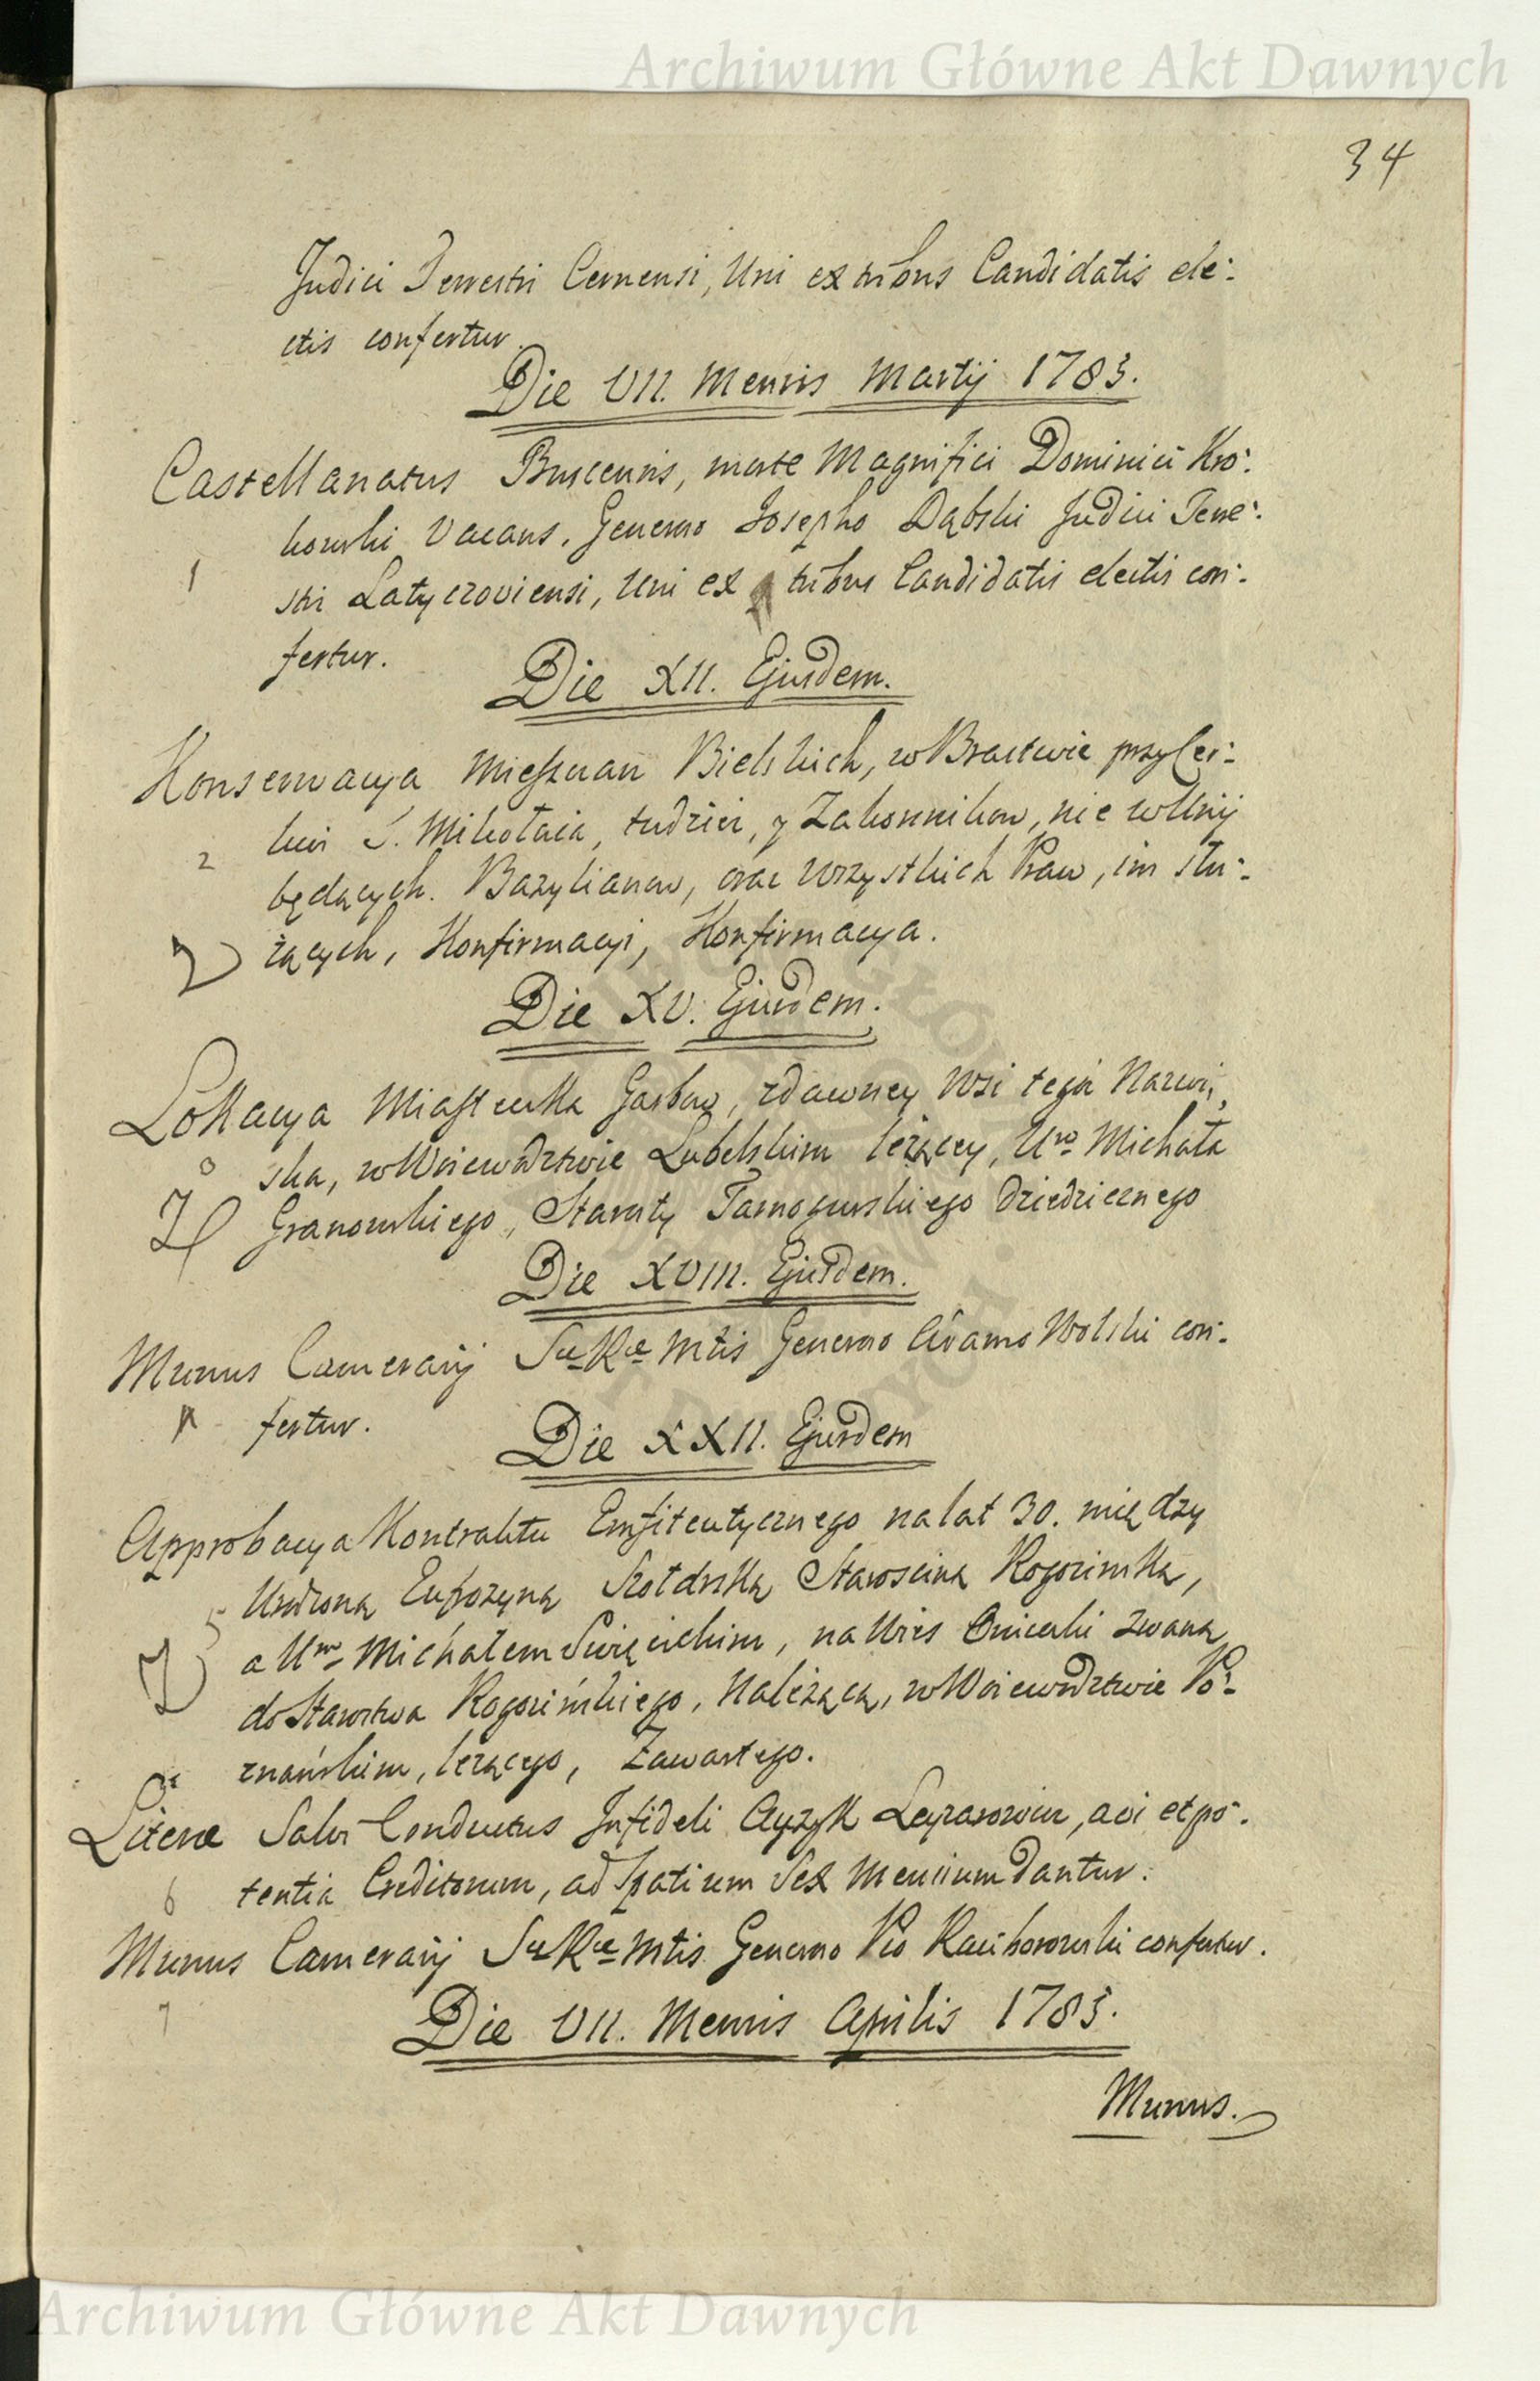 Archiwum Główne Akt Dawnych
34
Judici Terrestri Cernensi, Uni ex tribus Candidatis ele:
ctis confertur.
Die VII. Mensis Martij 1783.
Castellanatus Buscensis, morte Magnifici Dominici Kro:
kowski Vacans, Generoso Josepho Dąbski Judici Terre:
1
stri Latyczoviensi, Uni ex tribus Candidatis electis con:
fertur.
Die XII. Ejusdem.
Konserwacya Mieszczan Bielskich, w Bractwie przy Cer:
2
kwi S. Mikołaia, tudziez, y Zakonnikow, nie w Unij
będących. Bazylianow, oraz Wszystkich Praw, im słu:
żących, Konfirmacyi, Konfirmacya.
Die XV. Ejusdem.
Lokacya Miasteczka Garbow, z dawney Wsi tegoż Nazwi,
ska, w Woiewodztwie Lubelskim leżącey, Uro Michała
Granowskiego, Starosty Tarnogurskiego Dziedzicznego
Die XVIII. Ejusdem.
Munus Camerarij Sae Rae Mtis Generoso Adamo Wolski con:
fertur.
Die XXII. Ejusdem
Approbacya Kontraktu Emfiteutycznego na lat 30. między
5
Urodzoną Eufozyną Szołdrską Starościną Rogozinską,
a Um Michałem Swięcickim, na Wies zwaną
do Starostwa Rogozińskiego, Należącą, w Woiewodztwie Po:
znańskim, leżącego, Zawartego.
Literae Salvi Conductus Infideli Ayzyk, a vi et po:
6
tentia Creditorum, ad Spatium Sex Mensium Dantur.
Munus Camerarij Sae Rae Mtis Generoso Pio Raciborowski confertur.
7
Die VII. Mensis Aprilis 1783.
Munus.
Archiwum Główne Akt Dawnych